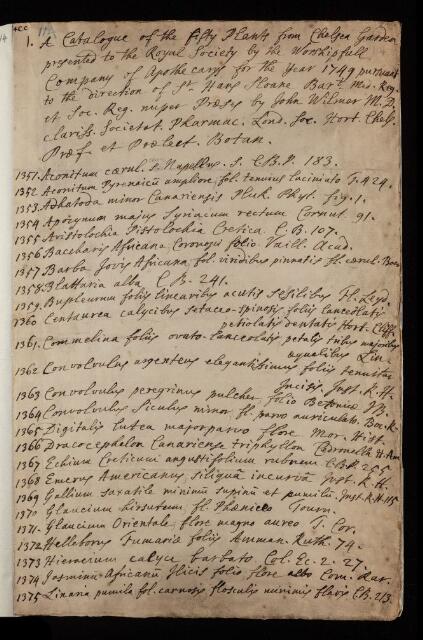 1. A Catalogue of the fifty Plants from Chelsea Garden
presented to the Royal Society by the Worshipfull
Company of Apothecarys for the Year 1749 pursuant
to the direction of Sr. Hans Sloane Bart. Med. Reg.
et Soc. Reg. nuper Præses by John Wilmer M.D.
clariss. Societat. Pharmac. Lond. Soc. Hort. Chels.
Præf. et Prælect. Botan.
1351. Aconitum cærul. s. Napellus. I. C.B.P. 183.
1352 Aconitum Pyrenaicū ampliore fol. tenuius laciniato T. 424.
1353 Adhatoda minor Canariensis Pluk. Phyt. fig. 1.
1354 Apocynum majus Syriacum rectum Cornut. 91.
1355 Aristolochia Pistolochia Cretica C.B. 107.
1356 Baccharis Africana Coronopi folio Vaill. Acad.
1357 Barba Jovis Africana fol. viridibus pinnatis fl. cærul. Boer.
1358. Blattaria alba C.B. 241.
1359. Bupleurum foliis linearibus acutis sessilibus Fl. Leyd.
1360 Centaurea calycibus setaceo-spinosis foliis lanceolatis
petiolatis dentatis Hort. Cliff.
1361. Commelina foliis ovato-lanceolatis petalis tribus majoribus
æqualibus Lin.
1362 Convolvulus argenteus elegantissimus foliis tenuiter
incisis Inst. R. H.
1363 Convolvulus peregrinus pulcher folio Betonicæ JB.
1364 Convolvulus Siculus minor fl. parvo auriculato. Boc. R.
1365 Digitalis lutea major parvo flore Mor. Hist.
1366 Dracocephalon Canariense triphyllon H. Am.
1367 Echium Creticum angustifolium rubrum C.B.P. 255
1368 Emerus Americanus siliquâ incurvâ Inst. R. H.
1369 Gallium saxatile minimū supinū et pumilū Inst. R. H. 115
1370 Glaucium hirsutum fl. Phœniceo Tourn.
1371. Glaucium Orientale, flore magno aureo T. Cor.
1372 Helleborus Fumariæ foliis Amman. Ruth. 74.
1373 Hieracium calyce barbato Col. Ec. 2. 27.
1374 Jasminū Africanū Ilicis folio flore albo Com. Rar.
1375 Linaria pumila fol. carnosis flosculis minimis flavis C.B. 213.